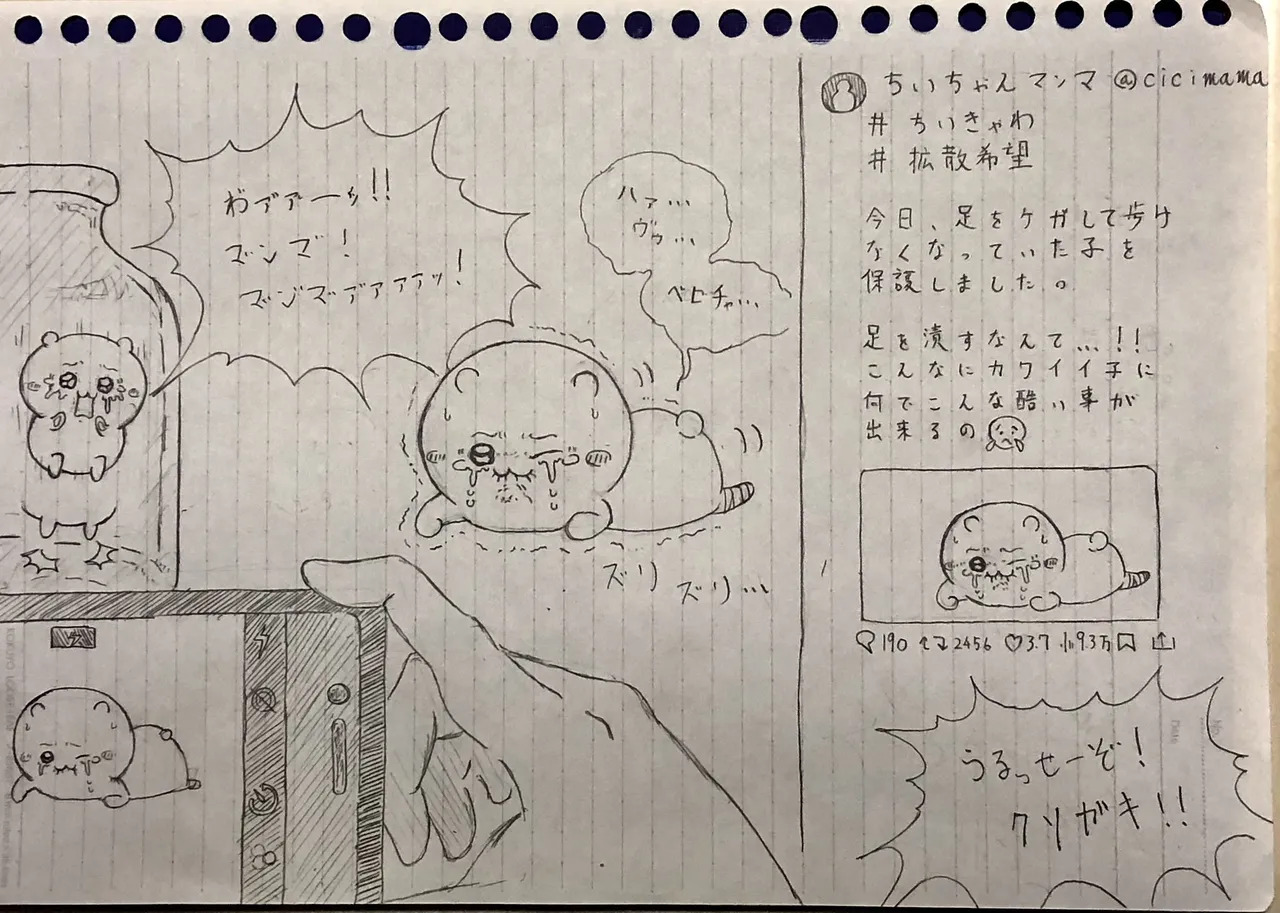 わ゛ァァーッ!!
ズンズ!
ズンズデァァァッ!
ハァ…
ヴゥ…
ベビチャ…
ズリ
ズリ…
ちいちゃんマンマ @cicimama
# ちいきゃわ
# 拡散希望
今日、足をケガして歩け
なくなっていた子を
保護しました。
足を潰すなんて…!!
こんなにカワイイ子に
何でこんな酷い事が
出来るの
190 2456 3.7 9.3万
うるっせーぞ!
クソガキ!!